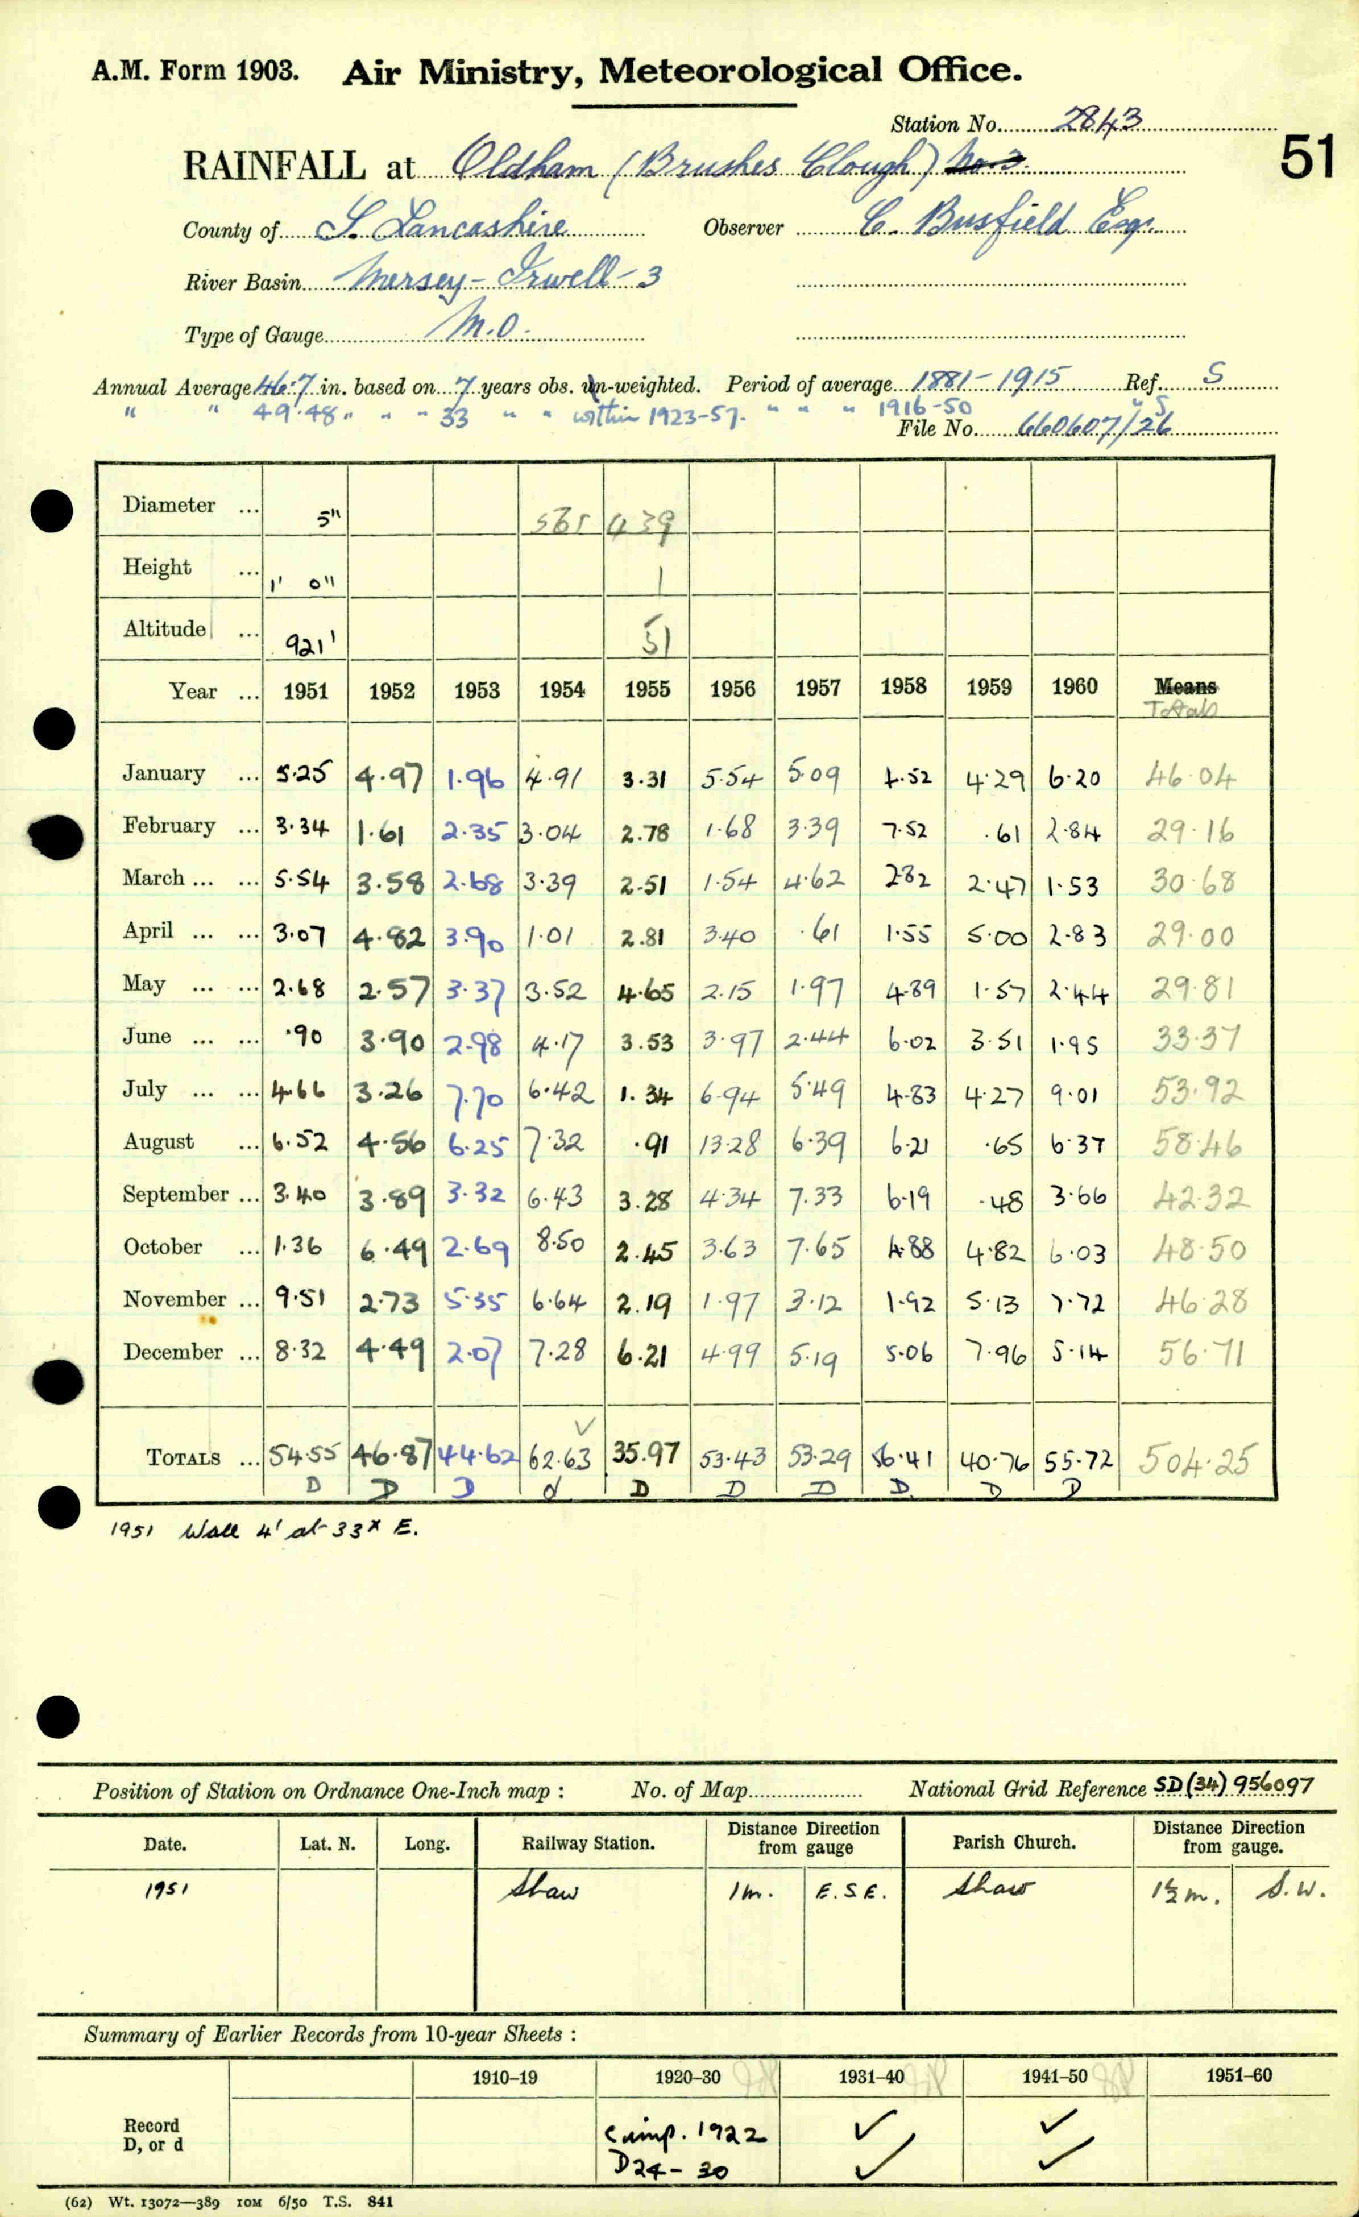 A.M. Form 1903. Air Ministry, Meteorological Office.
Station No. 2843
51
RAINFALL at Oldham (Brushes Clough) No. 3.
County of S. Lancashire Observer C. Busfield Esq.
River Basin Mersey - Irwell - 3
Type of Gauge M.O.
Annual Average 46.7 in. based on 7 years obs. un-weighted. Period of average 1881-1915 Ref. S
" " 49.48 " " " 33 " " within 1923-57. " " " 1916-50 " S
File No. 660607/26
Diameter ... 5" 565 439
Height ... 1' 0" 1
Altitude ... 921' 51
Year ... 1951 1952 1953 1954 1955 1956 1957 1958 1959 1960 Means
Totals
January ... 5.25 4.97 1.96 4.91 3.31 5.54 5.09 4.52 4.29 6.20 46.04
February ... 3.34 1.61 2.35 3.04 2.78 1.68 3.39 7.52 .61 2.84 29.16
March ... ... 5.54 3.58 2.68 3.39 2.51 1.54 4.62 2.82 2.47 1.53 30.68
April ... ... 3.07 4.82 3.90 1.01 2.81 3.40 .61 1.55 5.00 2.83 29.00
May ... ... 2.68 2.57 3.37 3.52 4.65 2.15 1.97 4.89 1.57 2.44 29.81
June ... ... .90 3.90 2.98 4.17 3.53 3.97 2.44 6.02 3.51 1.95 33.37
July ... ... 4.66 3.26 7.70 6.42 1.34 6.94 5.49 4.83 4.27 9.01 53.92
August ... 6.52 4.56 6.25 7.32 .91 13.28 6.39 6.21 .65 6.37 58.46
September ... 3.40 3.89 3.32 6.43 3.28 4.34 7.33 6.19 .48 3.66 42.32
October ... 1.36 6.49 2.69 8.50 2.45 3.63 7.65 4.88 4.82 6.03 48.50
November ... 9.51 2.73 5.35 6.64 2.19 1.97 3.12 1.92 5.13 7.72 46.28
December ... 8.32 4.49 2.07 7.28 6.21 4.99 5.19 5.06 7.96 5.14 56.71
TOTALS ... 54.55 46.87 44.62 62.63 35.97 53.43 53.29 56.41 40.76 55.72 504.25
D D D d D D D D D D
1951 Wall 4' at 33x E.
Position of Station on Ordnance One-Inch map : No. of Map National Grid Reference SD(34) 956097
Date. Lat. N. Long. Railway Station. Distance Direction from gauge Parish Church. Distance Direction from gauge.
1951 Shaw 1m. E.S.E. Shaw 1½m. S.W.
Summary of Earlier Records from 10-year Sheets :
1910-19 1920-30 1931-40 1941-50 1951-60
Record comp. 1922 ✓ ✓
D, or d D24-30 ✓ ✓
(62) Wt. 13072—389 10M 6/50 T.S. 841